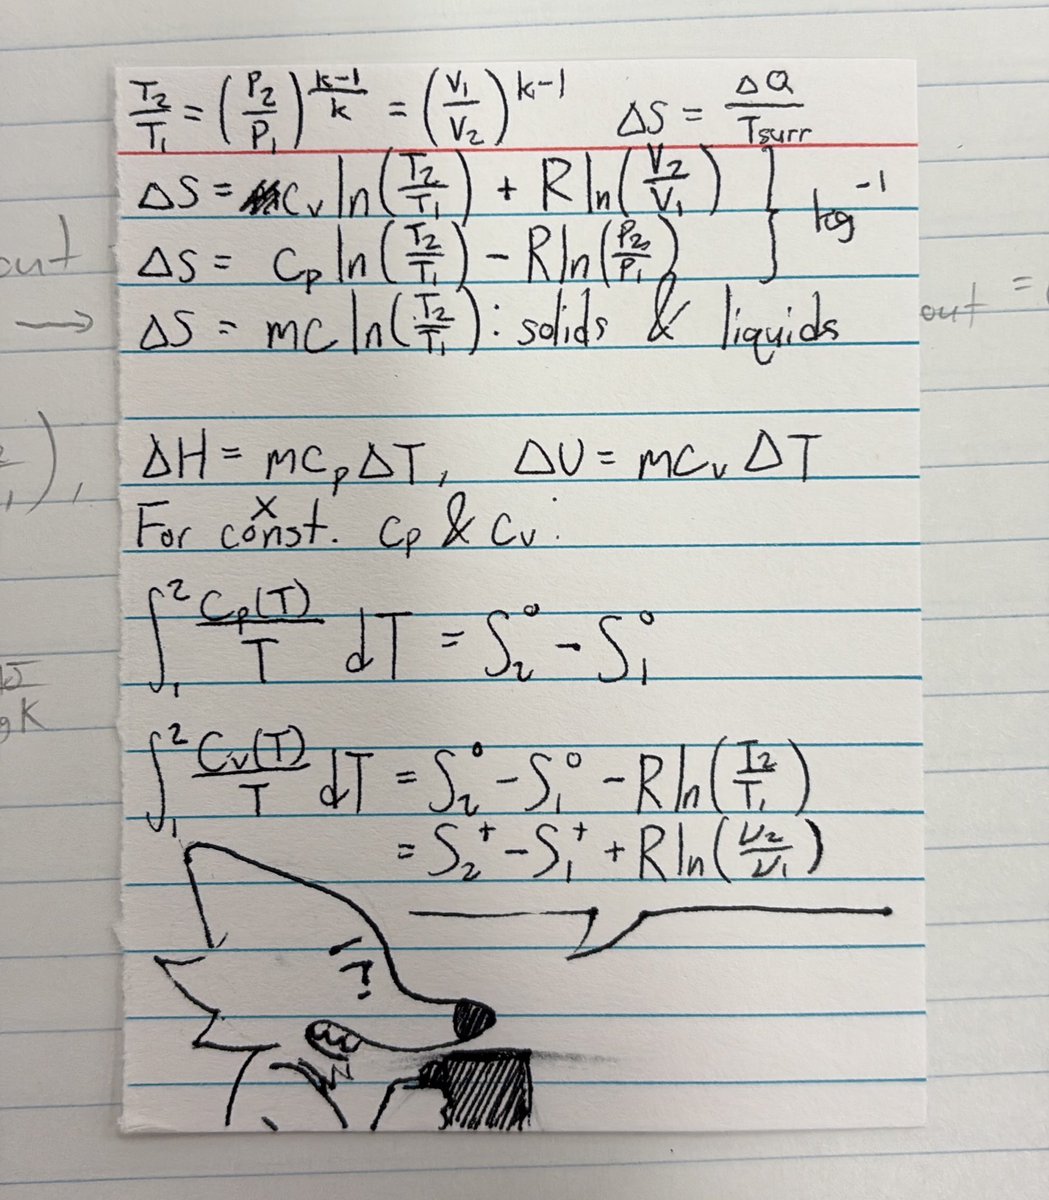 T₂/T₁ = (P₂/P₁)^((k-1)/k) = (V₁/V₂)^(k-1)    ΔS = ΔQ/Tsurr
ΔS = cᵥ ln(T₂/T₁) + R ln(V₂/V₁) } kg⁻¹
ΔS = cₚ ln(T₂/T₁) - R ln(P₂/P₁)
ΔS = mc ln(T₂/T₁) : solids & liquids
ΔH = mcₚΔT, ΔU = mcᵥΔT
For const. cₚ & cᵥ:
∫₁² Cₚ(T)/T dT = S₂° - S₁°
∫₁² Cᵥ(T)/T dT = S₂° - S₁° - R ln(T₂/T₁)
= S₂⁺ - S₁⁺ + R ln(ν₂/ν₁)
out
out =
K